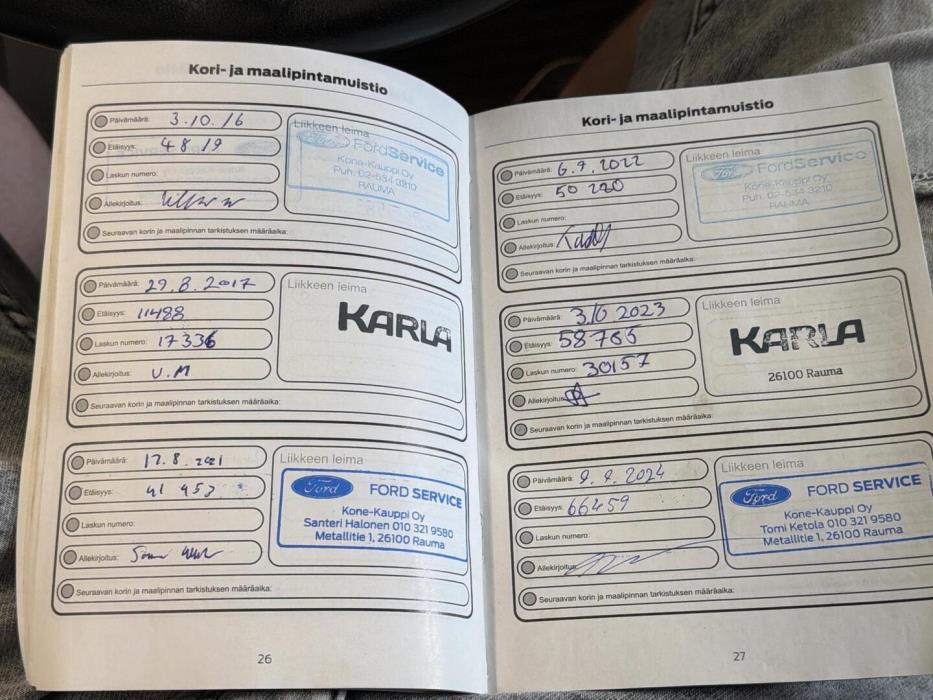 Kori- ja maalipintamuistio
Päivämäärä: 3.10.16
Etäisyys: 4819
Laskun numero:
Allekirjoitus:
Liikkeen leima
Ford FordService
Kone-Kauppi Oy
Puh. 02-534 3210
RAUMA
Seuraavan korin ja maalipinnan tarkistuksen määräaika:
Päivämäärä: 29.8.2017
Etäisyys: 11488
Laskun numero: 17336
Allekirjoitus: U.M
Liikkeen leima
KARLA
Seuraavan korin ja maalipinnan tarkistuksen määräaika:
Päivämäärä: 17.8.2021
Etäisyys: 41 457
Laskun numero:
Allekirjoitus:
Liikkeen leima
Ford FORD SERVICE
Kone-Kauppi Oy
Santeri Halonen 010 321 9580
Metallitie 1, 26100 Rauma
Seuraavan korin ja maalipinnan tarkistuksen määräaika:
26
Kori- ja maalipintamuistio
Päivämäärä: 6.7.2022
Etäisyys: 50 220
Laskun numero:
Allekirjoitus:
Liikkeen leima
Ford FordService
Kone-Kauppi Oy
Puh. 02-534 3210
RAUMA
Seuraavan korin ja maalipinnan tarkistuksen määräaika:
Päivämäärä: 3.10 2023
Etäisyys: 58765
Laskun numero: 30157
Allekirjoitus:
Liikkeen leima
KARLA
26100 Rauma
Seuraavan korin ja maalipinnan tarkistuksen määräaika:
Päivämäärä: 9.9.2024
Etäisyys: 66459
Laskun numero:
Allekirjoitus:
Liikkeen leima
Ford FORD SERVICE
Kone-Kauppi Oy
Tomi Ketola 010 321 9580
Metallitie 1, 26100 Rauma
Seuraavan korin ja maalipinnan tarkistuksen määräaika:
27